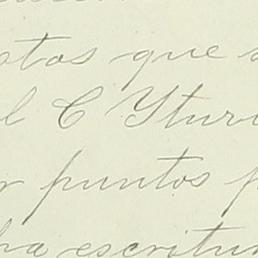 stos que
el C Yturb
r puntos p
ha escritur